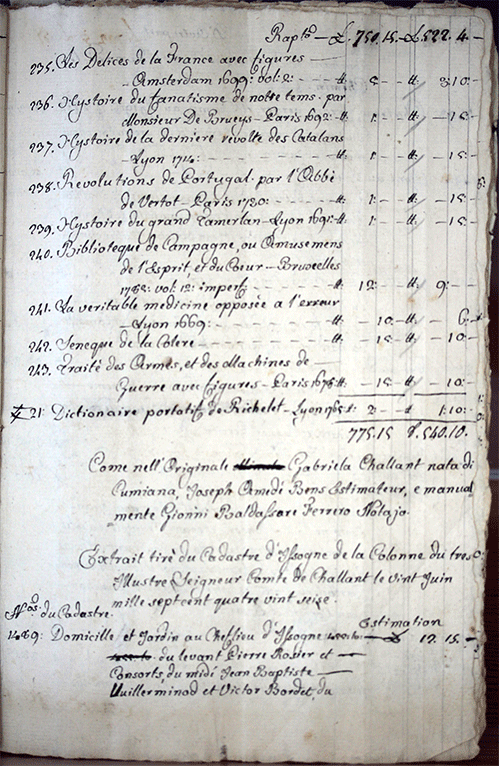 Rapto — £. 750. 15. — £ 522. 4. —
235. Les Delices de la France avec figures —
— Amsterdam 1699: vol: 2: — — — # 5 — # 3: 10: —
236. Hystoire du fanatisme de notre tems. par
Monsieur De Brueys — Paris 1692: # 1: — # — 15: —
237. Hystoire de la derniere revolte des Catalans
— Lyon 1714: — — — — # 1: — # — 15: —
238. Revolutions de Portugal. par l'Abbé
de Vertot — Paris 1730: — — # 1: — # — 15: —
239. Hystoire du grand Tamerlan — Lyon 1691: # 1: — # — 15: —
240. Biblioteque de Campagne, ou Amusemens
de l'Esprit, et du Coeur — Bruxelles
vol: 12: imperf: — # 12: — # 9: —
241. La veritable medicine opposée a l'erreur
— Lyon 1669: — — — — 10: — # — 6: —
242. Seneque de la Colere — — — — 15: — # — 10: —
243. Traité des Armes, et des Machines de —
Guerre avec figures — Paris # — 15: — # — 10: —
21: Dictionaire portatif de Richelet — Lyon 2: — 1: 10: —
775. 15 £. 540. 10.
Come nell'Originale Gabriela Challant nata di
Cumiana, Joseph Amedé Bens Estimateur, e manual
mente Gionni Baldassare Ferrero Notajo.
Extrait tiré du Cadastre d'Issogne de la Colonne du tres
Illustre Seigneur Comte de Challant le vint Juin
mille septcent quatre vint seize.
Nos. du Cadastre. Estimation
1489: Domicille et Jardin au Cheflieu d'Issogne — £ 12. 15 —
du levant Pierre Rosier et —
Consorts, du midi Jean Baptiste —
Vuillerminod et Victor Bordet, du